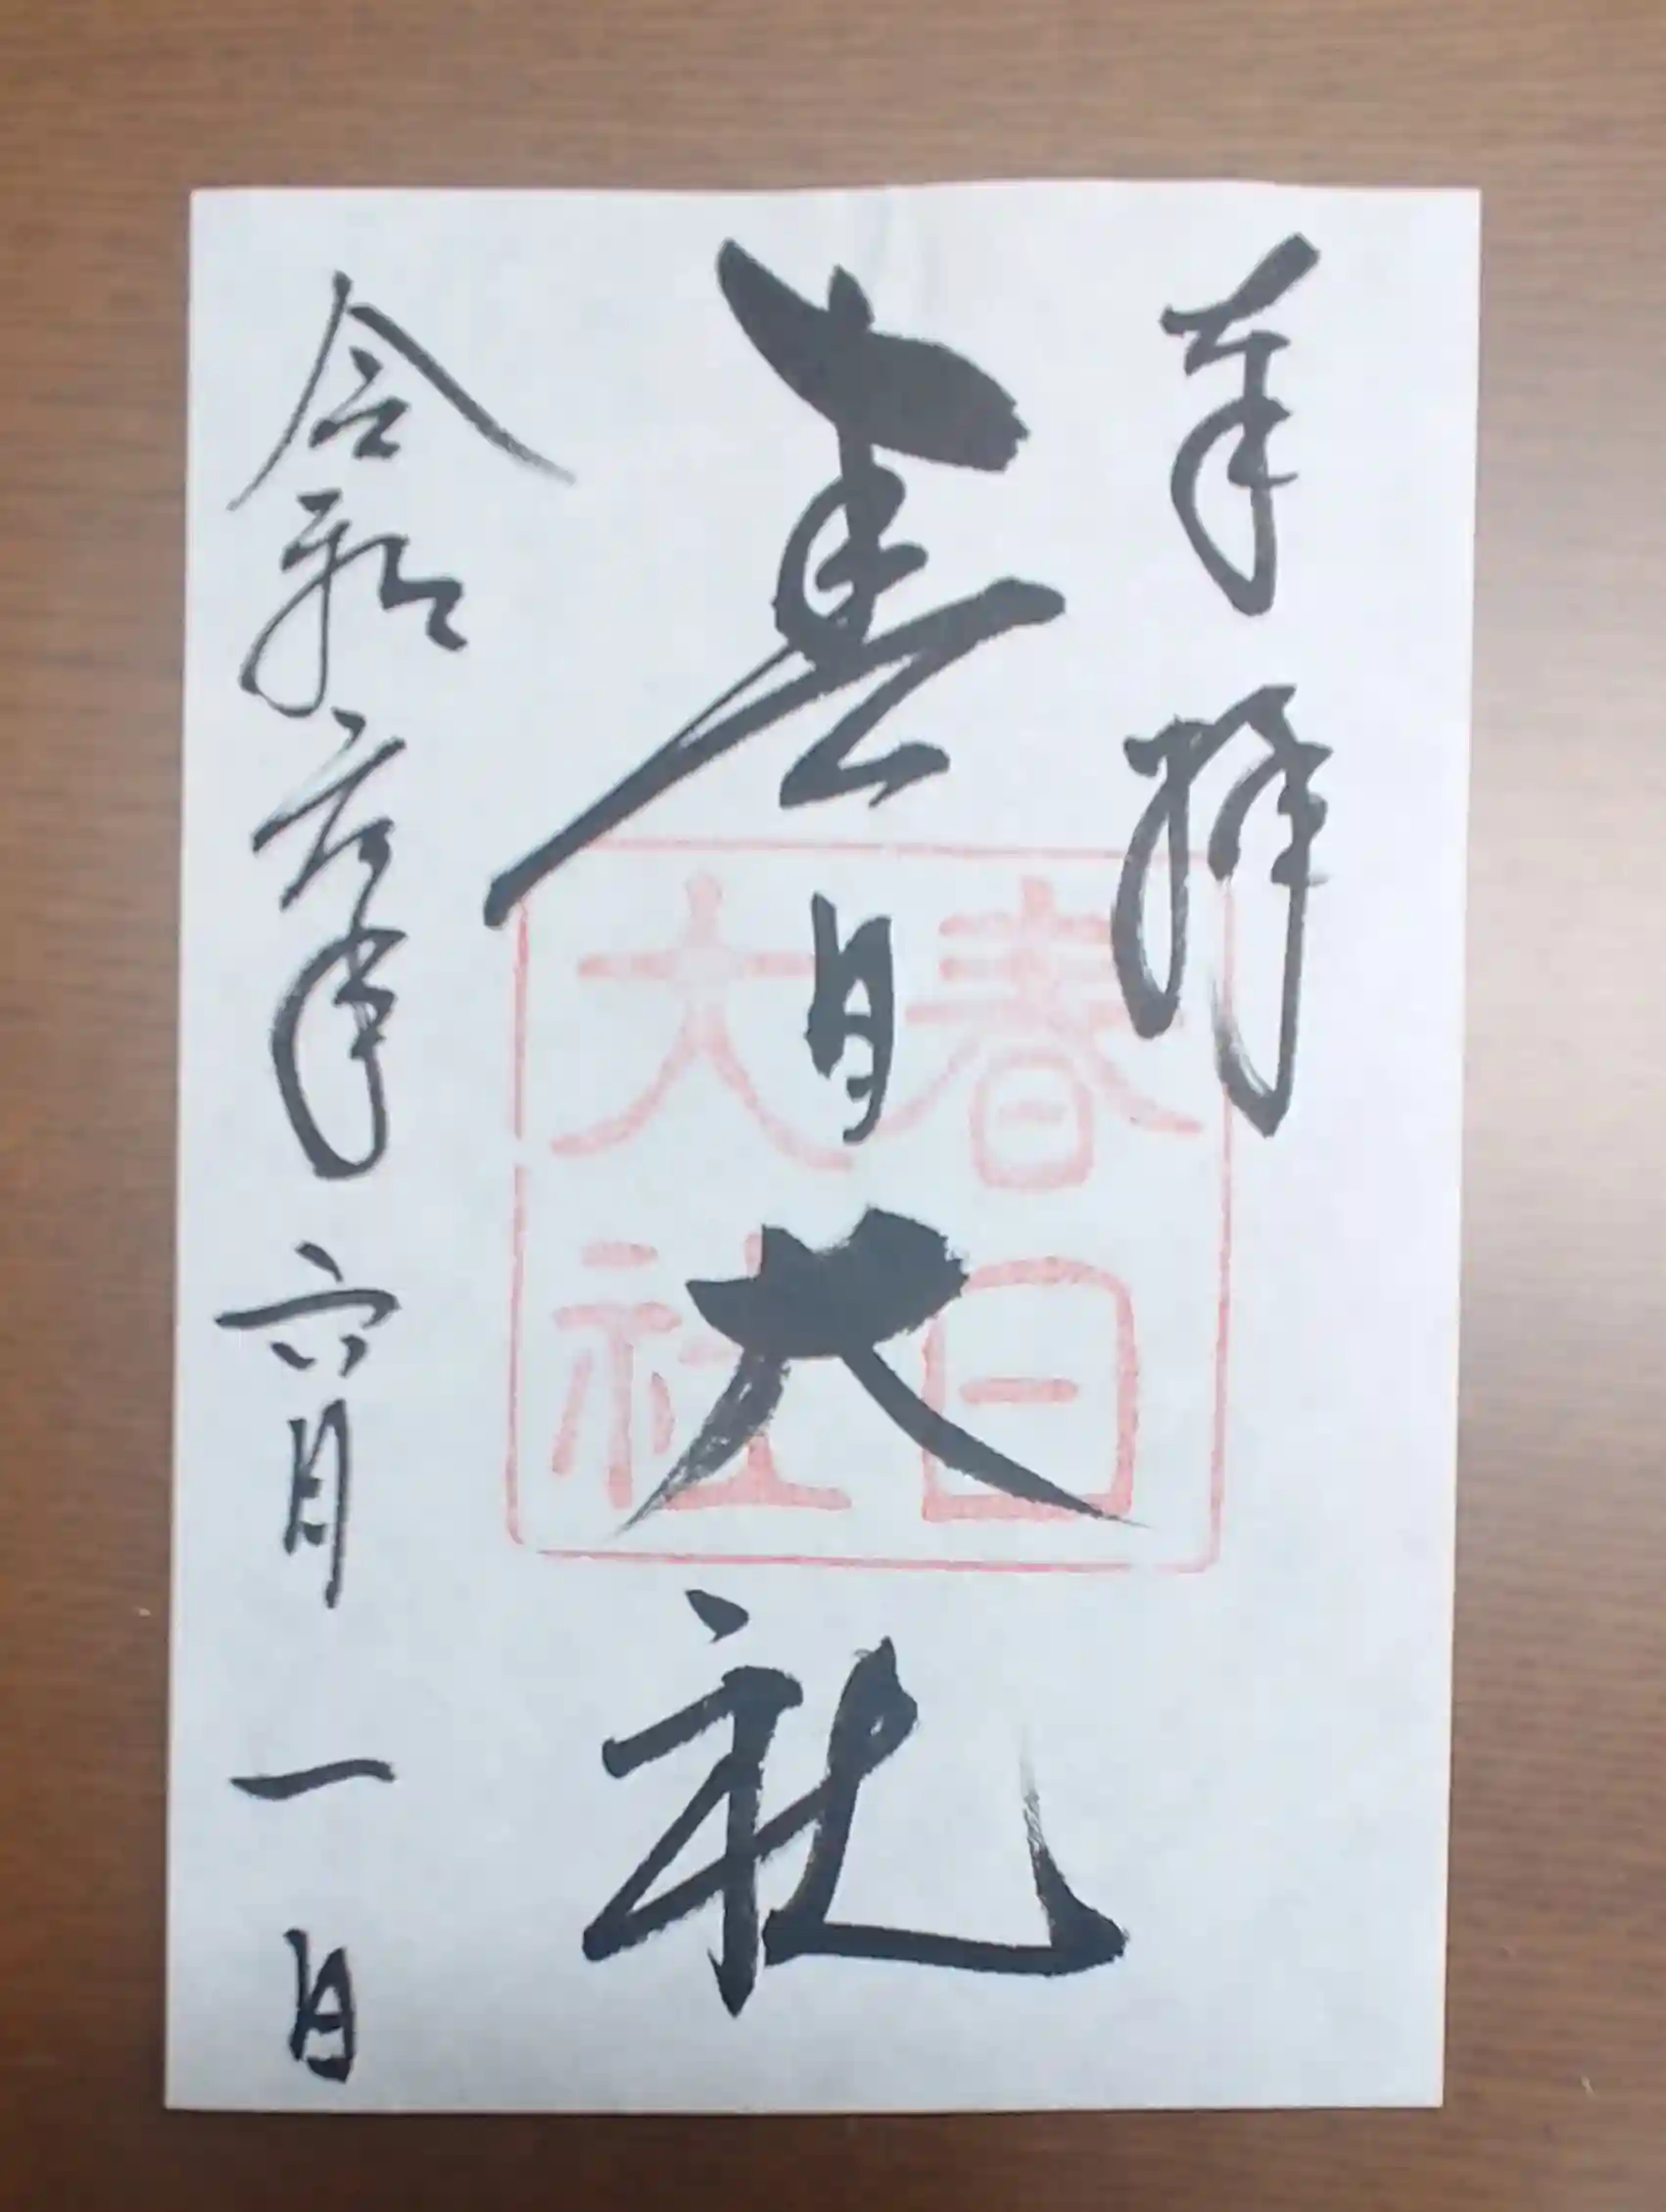 奉拝
春日大社
令和年六月一日
春日
大社